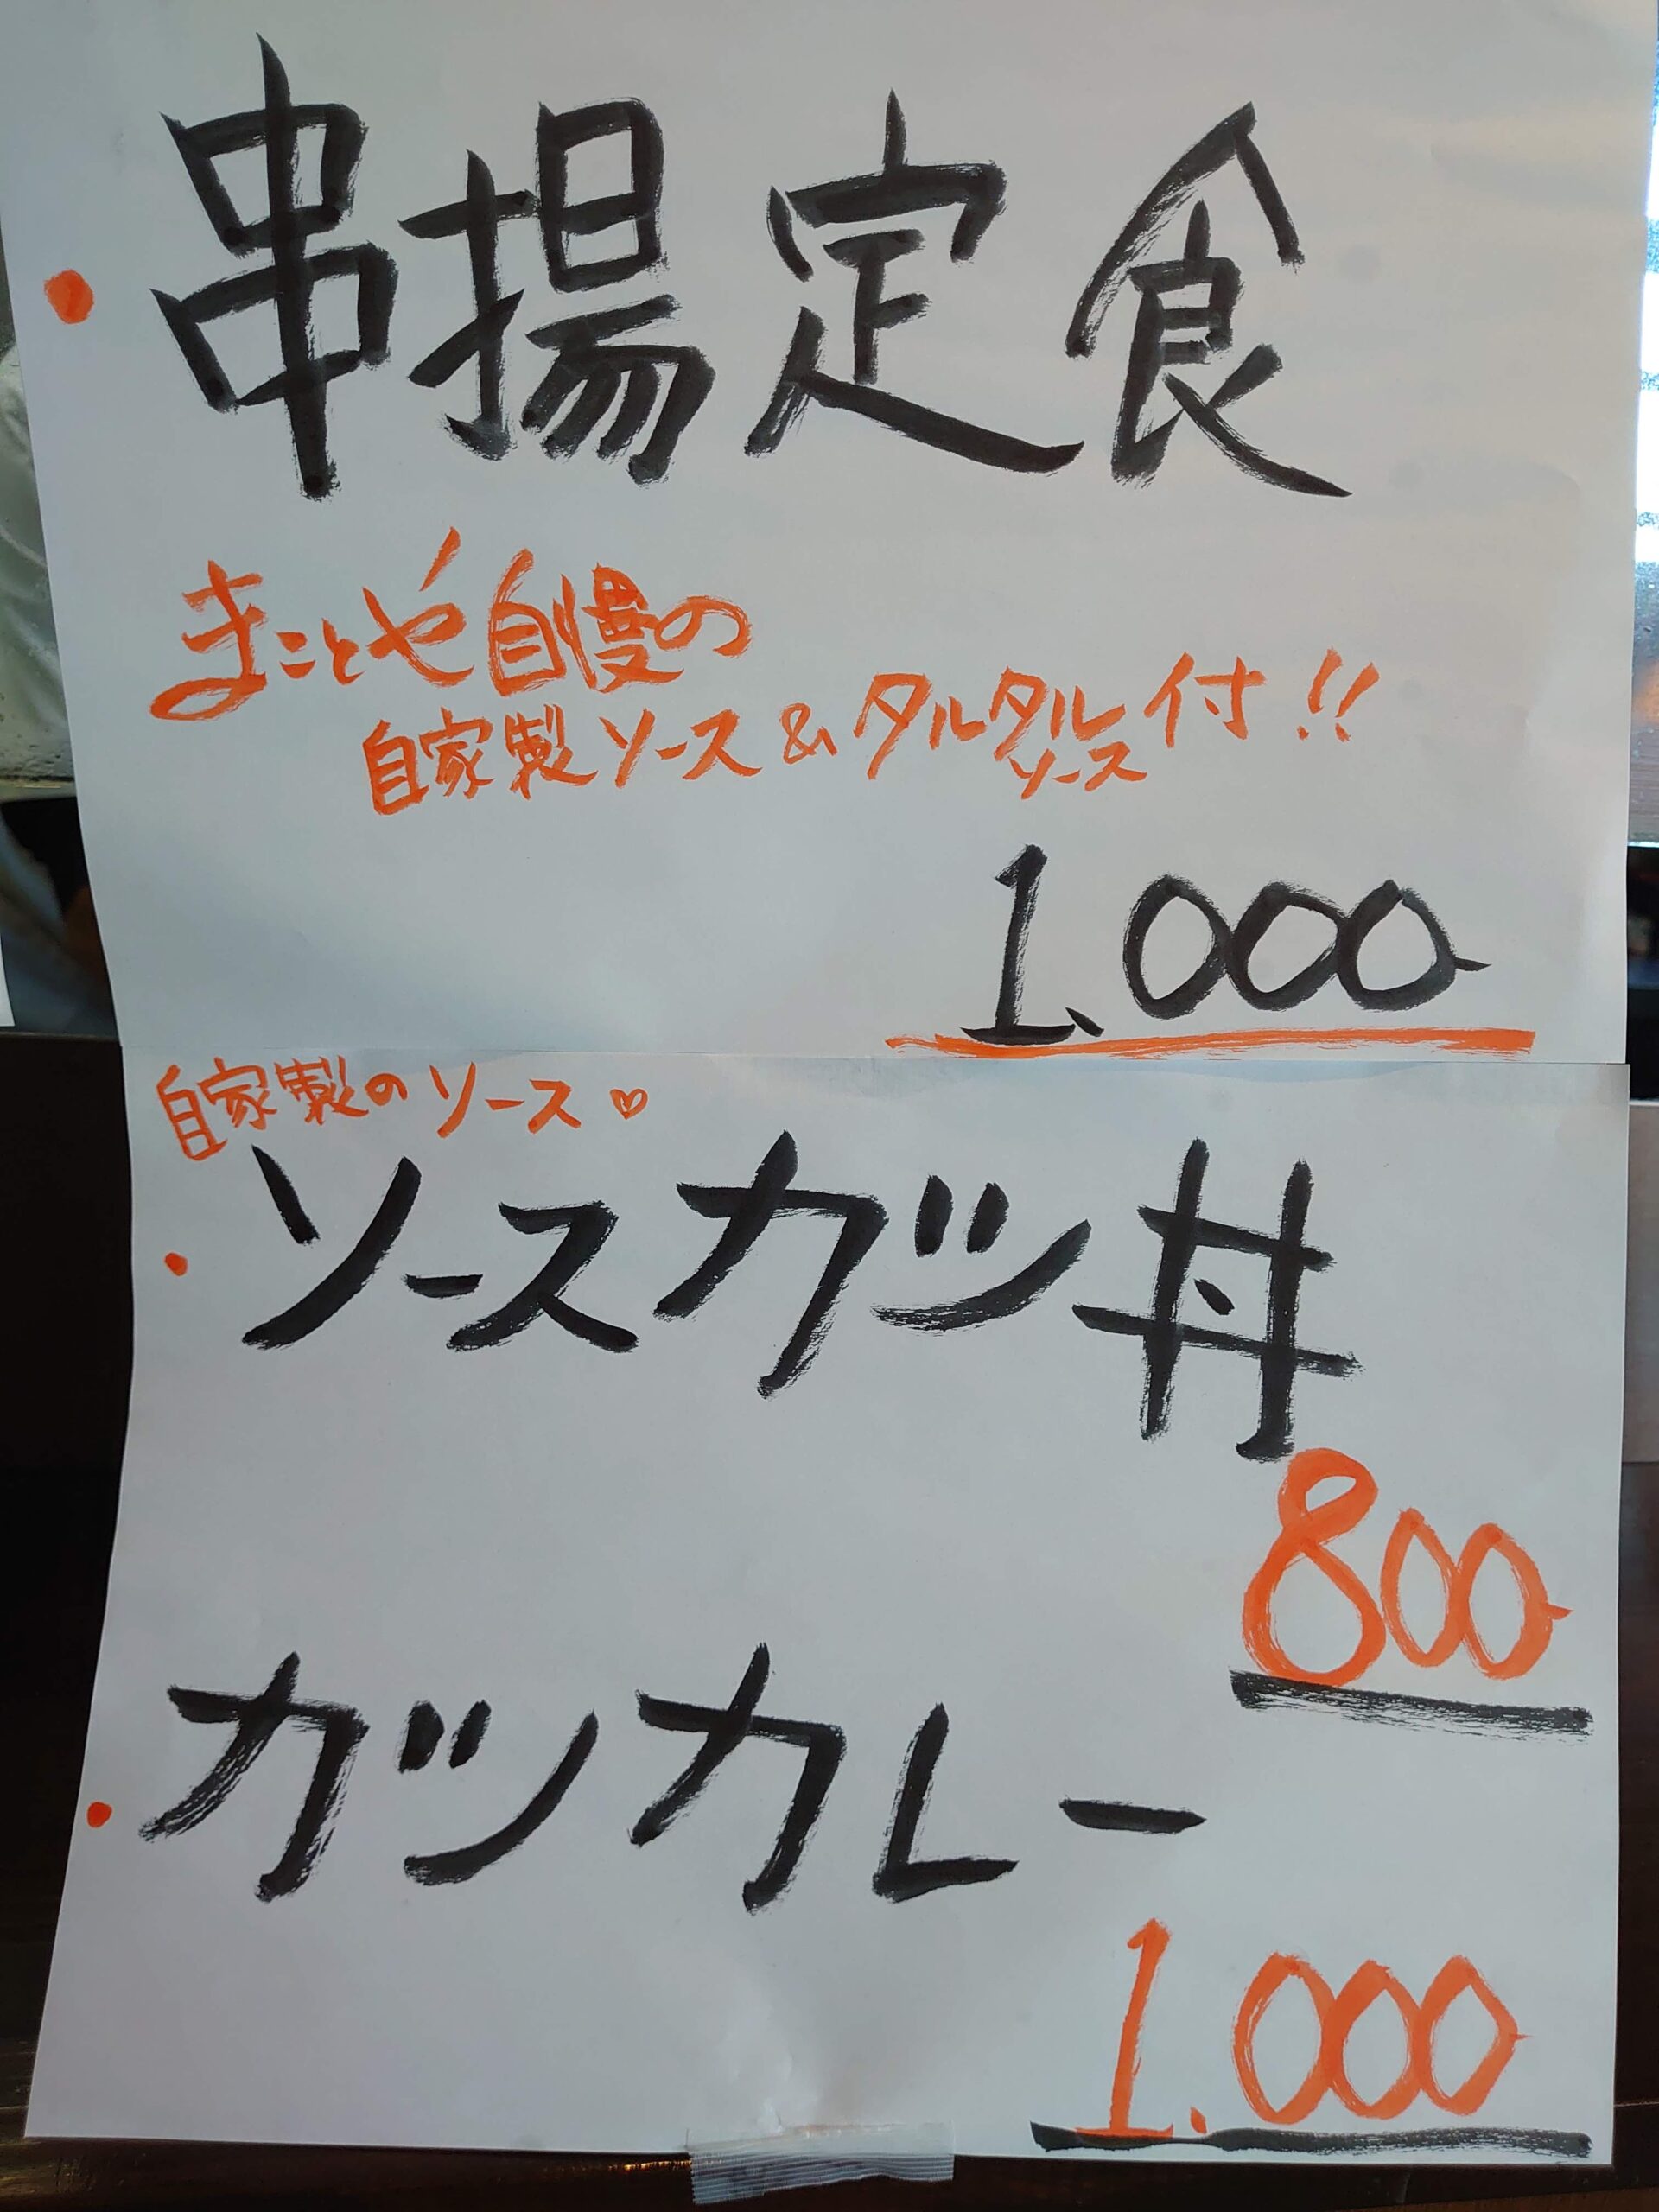 ・串揚定食
まことや自慢の
自家製ソース&タルタルソース付!!
1.000-
自家製のソース♡
・ソースカツ丼
800-
・カツカレー
1.000-